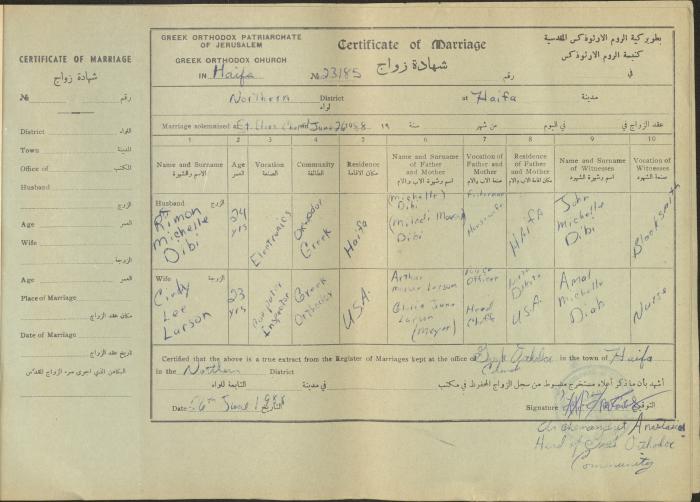 CERTIFICATE OF MARRIAGE
شهادة زواج
№ رقم
District اللواء
Town المدينة
Office of المكتب
Husband
الزوج
Age العمر
Wife
الزوجة
Age العمر
Place of Marriage
مكان عقد الزواج
Date of Marriage
تاريخ عقد الزواج
GREEK ORTHODOX PATRIARCHATE
OF JERUSALEM
GREEK ORTHODOX CHURCH
IN Haifa
Certificate of Marriage
شهادة زواج
№ 23185 رقم
بطريركية الروم الارثوذكس المقدسية
كنيسة الروم الاورثوذكس
في
Northern District
لواء
at Haifa مدينة
Marriage solemnised at
19 سنة من شهر في اليوم عقد الزواج في
1 2 3 4 5 6 7 8 9 10
Name and Surname
الاسم والشهرة
Age
العمر
Vocation
الصنعة
Community
الطائفة
Residence
مكان الاقامة
Name and Surname
of Father
and Mother
اسم وشهرة الاب والام
Vocation of
Father and
Mother
صنعة الاب والام
Residence
of Father
and Mother
مكان اقامة الاب والام
Name and Surname
of Witnesses
اسم وشهرة الشهود
Vocation of
Witnesses
صنعة الشهود
Husband الزوج
Rimon
Michelle
Dibi
24
yrs
Electronics
Greek
Haifa
(Michelle)
Dibi
Dibi
Housewife
Haifa
John
Michelle
Dibi
Blacksmith
Wife الزوجة
Cindy
Lee
Larson
23
yrs
Inspector
Greek
Orthodox
U.S.A.
Arthur
Larson
Gloria June
Larson
(Meyer)
Officer
Head
Dakota
U.S.A.
Amal
Michelle
Diab
Nurse
Certified that the above is a true extract from the Register of Marriages kept at the office of Greek Orthodox in the town of Haifa
Church
in the Northern District التابعة للواء في مدينة أشهد بأن ما ذكر أعلاه مستخرج مضبوط من سجل الزواج المحفوظ في مكتب
Date 26th June 1988 التاريخ
Signature التوقيع
Archemandrit
Head of Greek Orthodox
Community